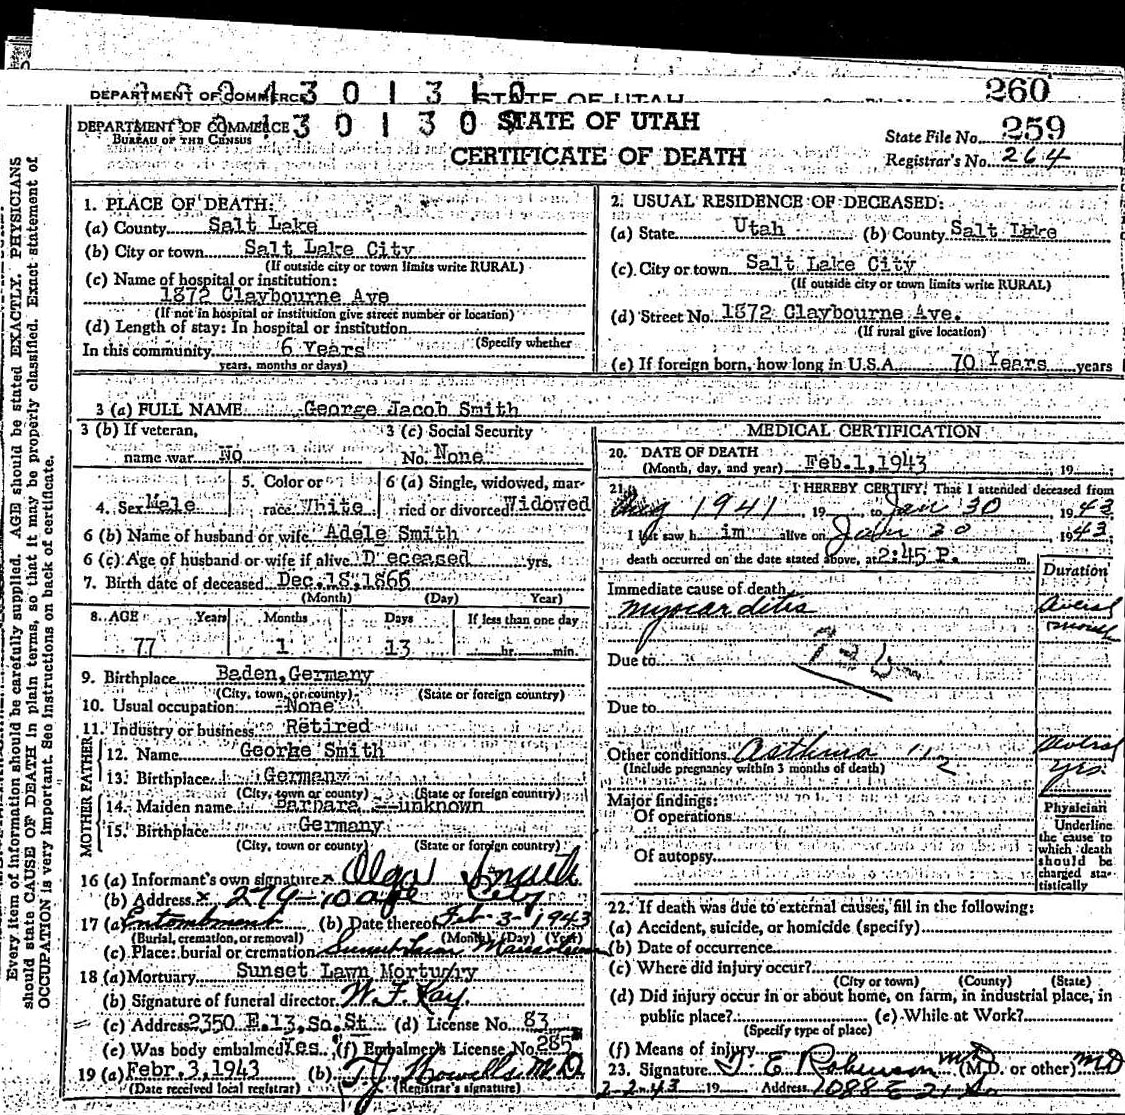 260
DEPARTMENT OF COMMERCE STATE OF UTAH
DEPARTMENT OF COMMERCE STATE OF UTAH
BUREAU OF THE CENSUS
State File No. 259
CERTIFICATE OF DEATH
Registrar's No. 264
Every item of information should be carefully supplied. AGE should be stated EXACTLY. PHYSICIANS
should state CAUSE OF DEATH in plain terms, so that it may be properly classified. Exact statement of
OCCUPATION is very important. See instructions on back of certificate.
1. PLACE OF DEATH:
(a) County Salt Lake
(b) City or town Salt Lake City
(If outside city or town limits write RURAL)
(c) Name of hospital or institution:
1872 Claybourne Ave
(If not in hospital or institution give street number or location)
(d) Length of stay: In hospital or institution
(Specify whether
In this community 6 Years
years, months or days)
2. USUAL RESIDENCE OF DECEASED:
(a) State Utah (b) County Salt Lake
(c) City or town Salt Lake City
(If outside city or town limits write RURAL)
(d) Street No. 1872 Claybourne Ave.
(If rural give location)
(e) If foreign born, how long in U.S.A. 70 Years years
3 (a) FULL NAME George Jacob Smith
3 (b) If veteran, 3 (c) Social Security
name war No No. None
4. Sex Male 5. Color or race White 6 (a) Single, widowed, married or divorced Widowed
6 (b) Name of husband or wife Adele Smith
6 (c) Age of husband or wife if alive D eceased yrs.
7. Birth date of deceased Dec. 18, 1865
(Month) (Day) Year)
8. AGE Years Months Days If less than one day
77 1 13 hr. min.
9. Birthplace Baden, Germany
(City, town, or county) (State or foreign country)
10. Usual occupation None
11. Industry or business Retired
FATHER
12. Name George Smith
13. Birthplace Germany
(City, town or county) (State or foreign country)
MOTHER
14. Maiden name Barbara -- unknown
15. Birthplace Germany
(City, town or county) (State or foreign country)
16 (a) Informant's own signature x Olga Smith
(b) Address x 279 - City
17 (a) Entombment (b) Date thereof Feb-3-1943
(Burial, cremation, or removal) (Month) (Day) (Year)
(c) Place: burial or cremation Sunset Lawn Mausoleum
18 (a) Mortuary Sunset Lawn Mortuary
(b) Signature of funeral director
(c) Address 2350 E. 13, So. St (d) License No. 83
(e) Was body embalmed Yes (f) Embalmer's License No. 285
19 (a) Febr. 3, 1943 (b) M.D.
(Date received local registrar) (Registrar's signature)
MEDICAL CERTIFICATION
20. DATE OF DEATH
(Month, day, and year) Feb. 1, 1943 19
21. I HEREBY CERTIFY, That I attended deceased from
Aug 1941, 19 to Jan 30 1943
I last saw h im alive on Jan 30 1943
death occurred on the date stated above, at 2:45 P. m.
Duration
Immediate cause of death
myocarditis
Due to
Due to
Other conditions Asthma
(Include pregnancy within 3 months of death)
yrs.
Major findings:
Of operations
Of autopsy
Physician
Underline
the cause to
which death
should be
charged sta-
tistically
22. If death was due to external causes, fill in the following:
(a) Accident, suicide, or homicide (specify)
(b) Date of occurrence
(c) Where did injury occur?
(City or town) (County) (State)
(d) Did injury occur in or about home, on farm, in industrial place, in
public place? (e) While at Work?
(Specify type of place)
(f) Means of injury
23. Signature (M.D. or other) MD
2-2-43 19 Address 1088 E 21 So